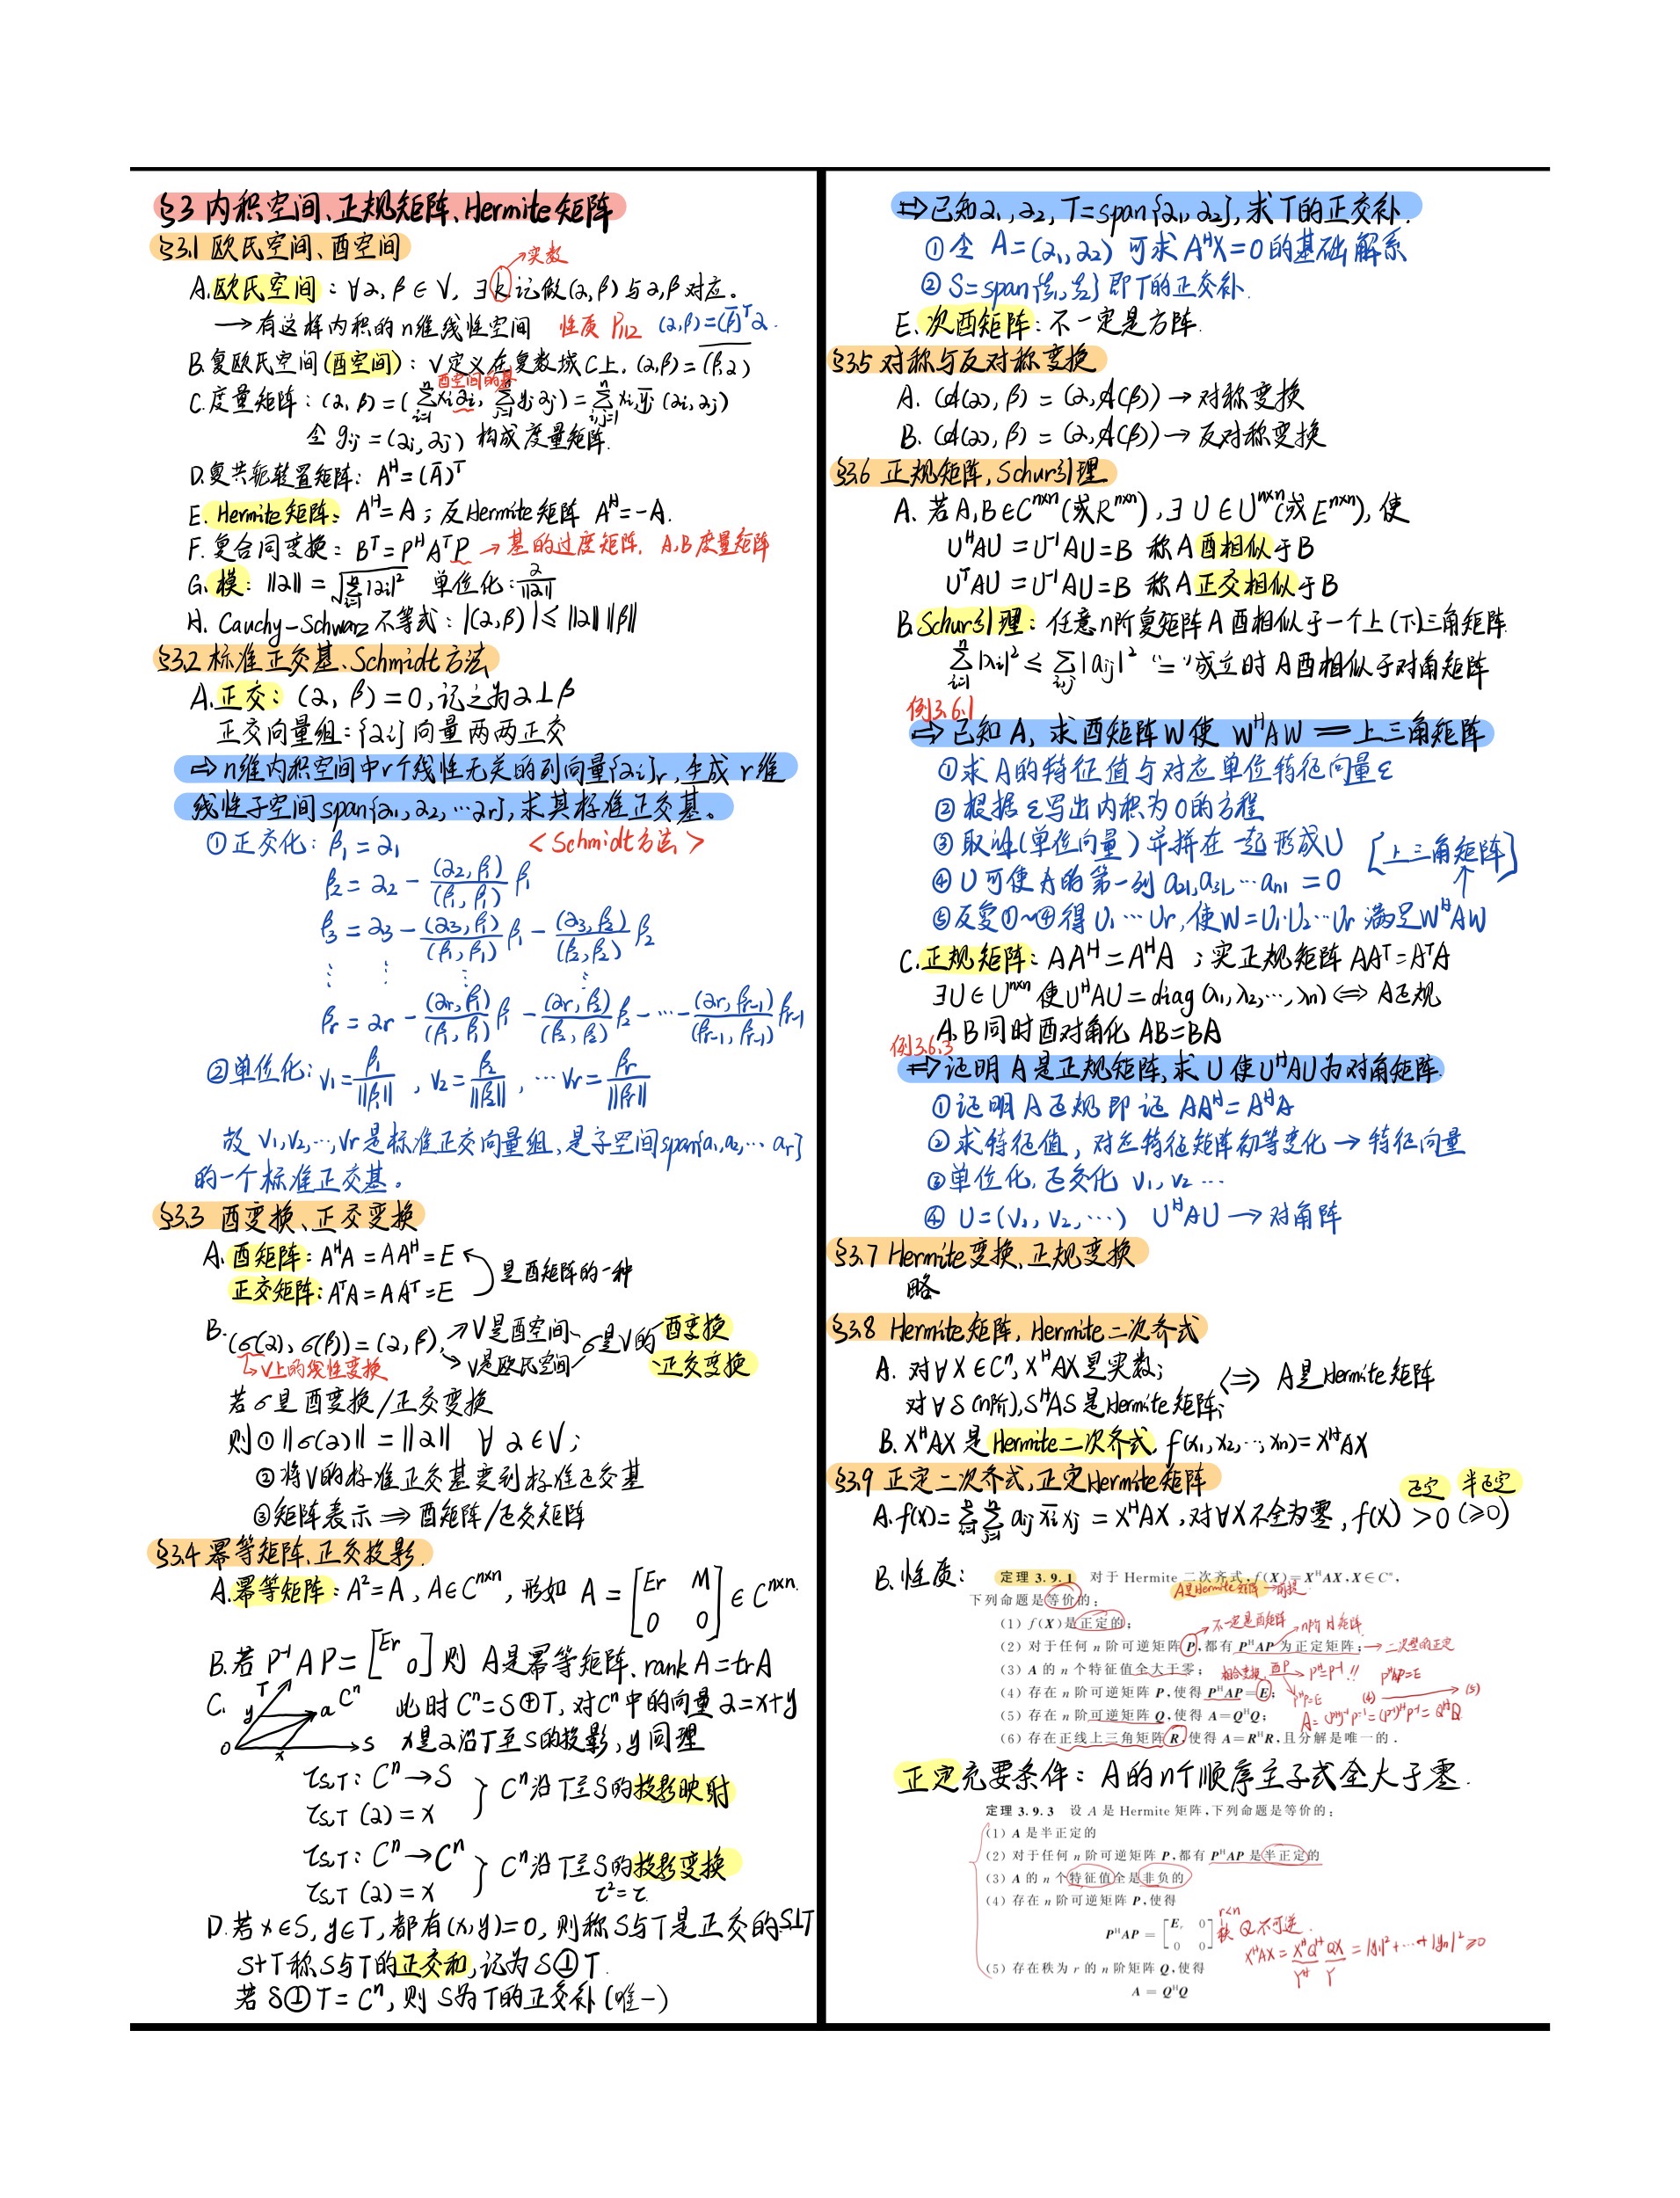 §3 内积空间、正规矩阵、Hermite矩阵
§3.1 欧氏空间、酉空间
→实数
A.欧氏空间：∀α, β ∈ V, ∃ k 记做(α, β)与α,β对应。
→有这样内积的n维线性空间 性质 P112 (α,β)=(β̄)ᵀα.
B.复欧氏空间(酉空间)：V定义在复数域C上. (α,β)=\overline{(β,α)}
酉空间的基
C.度量矩阵：(α, β)=(∑_{i=1}^{n} xiαi, ∑_{j=1}^{n} yjαj)=∑_{i,j=1}^{n} xiȳj (αi, αj)
令 gij=(αi, αj) 构成度量矩阵.
D.复共轭转置矩阵：Aᴴ=(Ā)ᵀ
E. Hermite矩阵：Aᴴ=A；反Hermite矩阵 Aᴴ=-A.
F. 复合同变换：Bᵀ=PᴴAᵀP →基的过度矩阵. A,B度量矩阵
G. 模：||α||=√(∑_{i=1}^{n}|αi|²) 单位化：α/||α||
H. Cauchy-Schwarz不等式：|(α,β)|≤||α|| ||β||
§3.2 标准正交基、Schmidt方法
A.正交：(α, β)=0,记之为α⊥β
正交向量组：{αi}向量两两正交
⇒n维内积空间中r个线性无关的列向量{αi}r,生成r维
线性子空间span{α1, α2, …αr},求其标准正交基。
①正交化：β1=α1 <Schmidt方法>
β2=α2-(α2,β1)/(β1,β1) β1
β3=α3-(α3,β1)/(β1,β1) β1-(α3,β2)/(β2,β2) β2
⋮ ⋮ ⋮ ⋮
βr=αr-(αr,β1)/(β1,β1) β1-(αr,β2)/(β2,β2) β2-…-(αr,βr-1)/(βr-1,βr-1) βr-1
②单位化：v1=β1/||β1||, v2=β2/||β2||, …vr=βr/||βr||
故 v1,v2,…,vr是标准正交向量组,是子空间span{α1,α2,…αr}
的一个标准正交基。
§3.3 酉变换、正交变换
A.酉矩阵：AᴴA=AAᴴ=E
是酉矩阵的一种
正交矩阵：AᵀA=AAᵀ=E
B.(σ(α),σ(β))=(α,β), →V是酉空间 σ是V的 酉变换
↳V上的线性变换 →V是欧氏空间 正交变换
若σ是酉变换/正交变换
则①||σ(α)||=||α|| ∀ α∈V;
②将V的标准正交基变到标准正交基
③矩阵表示⇒酉矩阵/正交矩阵
§3.4 幂等矩阵、正交投影.
A.幂等矩阵：A²=A, A∈Cⁿˣⁿ, 形如 A=[Er M; 0 0]∈Cⁿˣⁿ.
B.若 P⁻¹AP=[Er 0] 则 A是幂等矩阵. rankA=trA
C. T y α Cⁿ 0 x S 此时Cⁿ=S⊕T,对Cⁿ中的向量α=x+y
x是α沿T至S的投影,y同理
τS,T：Cⁿ→S
τS,T(α)=x } Cⁿ沿T至S的投影映射
τS,T：Cⁿ→Cⁿ
τS,T(α)=x } Cⁿ沿T至S的投影变换
τ²=τ.
D.若x∈S, y∈T, 都有(x,y)=0, 则称S与T是正交的.S⊥T
S+T称S与T的正交和,记为SⓛT.
若SⓛT=Cⁿ,则S为T的正交补(唯一)
⇒已知α1, α2, T=span{α1, α2},求T的正交补.
①令 A=(α1, α2) 可求AᴴX=0的基础解系
②S=span{ξ1, ξ2}即T的正交补.
E. 次酉矩阵：不一定是方阵.
§3.5 对称与反对称变换
A. (𝒜(α), β)=(α,𝒜(β))→对称变换
B. (𝒜(α), β)=(α,𝒜(β))→反对称变换
§3.6 正规矩阵, Schur引理
A. 若A,B∈Cⁿˣⁿ(或Rⁿˣⁿ),∃U∈Uⁿˣⁿ(或Eⁿˣⁿ),使
UᴴAU=U⁻¹AU=B 称A酉相似于B
UᵀAU=U⁻¹AU=B 称A正交相似于B
B.Schur引理：任意n阶复矩阵A酉相似于一个上(下)三角矩阵.
∑_{i=1}^{n}|λi|²≤∑_{i,j}|aij|² "="成立时A酉相似于对角矩阵
例3.6.1
⇒已知A, 求酉矩阵W使 WᴴAW═上三角矩阵
①求A的特征值与对应单位特征向量ε
②根据ε写出内积为0的方程
③取解(单位向量)并拼在一起形成U [上三角矩阵]
④U可使A的第一列a21,a31,…an1=0 ↑
⑤反复①~④得U1…Ur,使W=U1U2…Ur满足WᴴAW
C.正规矩阵：AAᴴ=AᴴA；实正规矩阵AAᵀ=AᵀA
∃U∈Uⁿˣⁿ使UᴴAU=diag(λ1,λ2,…,λn)⇔A正规
A,B同时酉对角化 AB=BA
例3.6.3
⇒证明A是正规矩阵,求U使UᴴAU为对角矩阵.
①证明A正规即证 AAᴴ=AᴴA
②求特征值,对应特征矩阵初等变化→特征向量
③单位化,正交化 v1,v2…
④U=(v1, v2,…) UᴴAU→对角阵
§3.7 Hermite变换、正规变换
略
§3.8 Hermite矩阵, Hermite二次齐式
A. 对∀X∈Cⁿ, XᴴAX是实数;
⇔ A是Hermite矩阵
对∀S(n阶),SᴴAS是Hermite矩阵;
B. XᴴAX是Hermite二次齐式. f(x1,x2,…,xn)=XᴴAX
§3.9 正定二次齐式,正定Hermite矩阵
正定 半正定
A.f(X)=∑_{i=1}^{n}∑_{j=1}^{n} aij x̄i xj=XᴴAX,对∀X不全为零,f(X)>0(≥0)
B.性质：
定理 3.9.1 对于 Hermite 二次齐式 f(X)=XᴴAX,X∈Cⁿ,
A是Hermite矩阵→前提.
下列命题是等价的：
(1) f(X)是正定的；
→不一定是酉矩阵 →n阶H矩阵
(2) 对于任何 n 阶可逆矩阵 P,都有 PᴴAP 为正定矩阵；→二次型的正定
(3) A 的 n 个特征值全大于零； 酉P→Pᴴ=P⁻¹!! PᴴAP=E
(4) 存在 n 阶可逆矩阵 P,使得 PᴴAP=E； PᴴP=E (4)→(5)
(5) 存在 n 阶可逆矩阵 Q,使得 A=QᴴQ； A=(Pᴴ)⁻¹P⁻¹=(P⁻¹)ᴴP⁻¹=QᴴQ
(6) 存在正线上三角矩阵 R,使得 A=RᴴR,且分解是唯一的.
正定充要条件：A的n个顺序主子式全大于零.
定理 3.9.3 设 A 是 Hermite 矩阵,下列命题是等价的：
(1) A 是半正定的
(2) 对于任何 n 阶可逆矩阵 P,都有 PᴴAP 是半正定的
(3) A 的 n 个特征值全是非负的
(4) 存在 n 阶可逆矩阵 P,使得
r<n
PᴴAP=[Er 0; 0 0] 秩 Q不可逆.
XᴴAX=XᴴQᴴQX=|y1|²+…+|yn|²≥0
Yᴴ Y
(5) 存在秩为 r 的 n 阶矩阵 Q,使得
A=QᴴQ